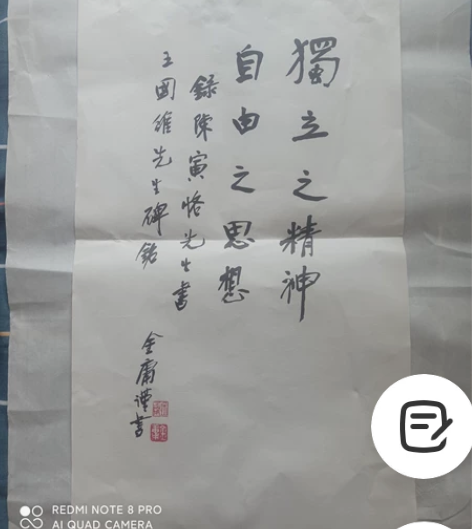 獨立之精神
自由之思想
錄陳寅恪先生書
王國維先生碑銘
金庸謹書
REDMI NOTE 8 PRO
AI QUAD CAMERA